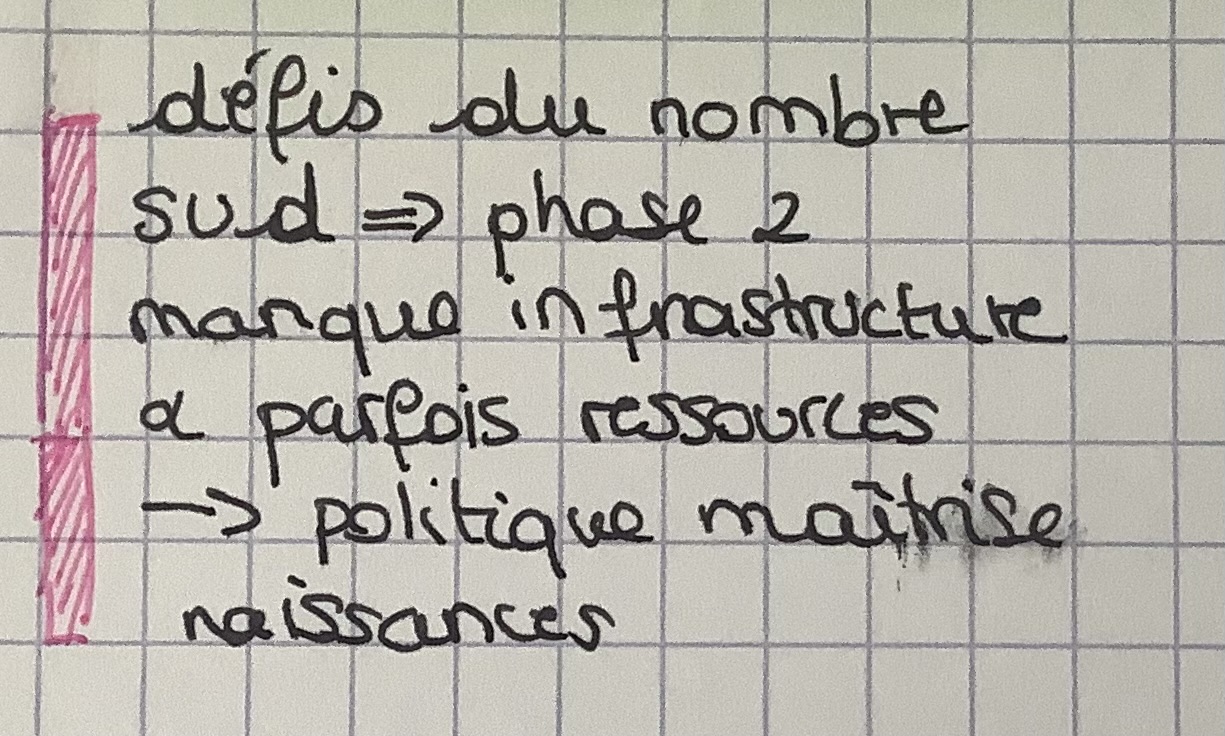 défis du nombre
sud => phase 2
manque infrastructure
& parfois ressources
-> politique maîtrise
naissances